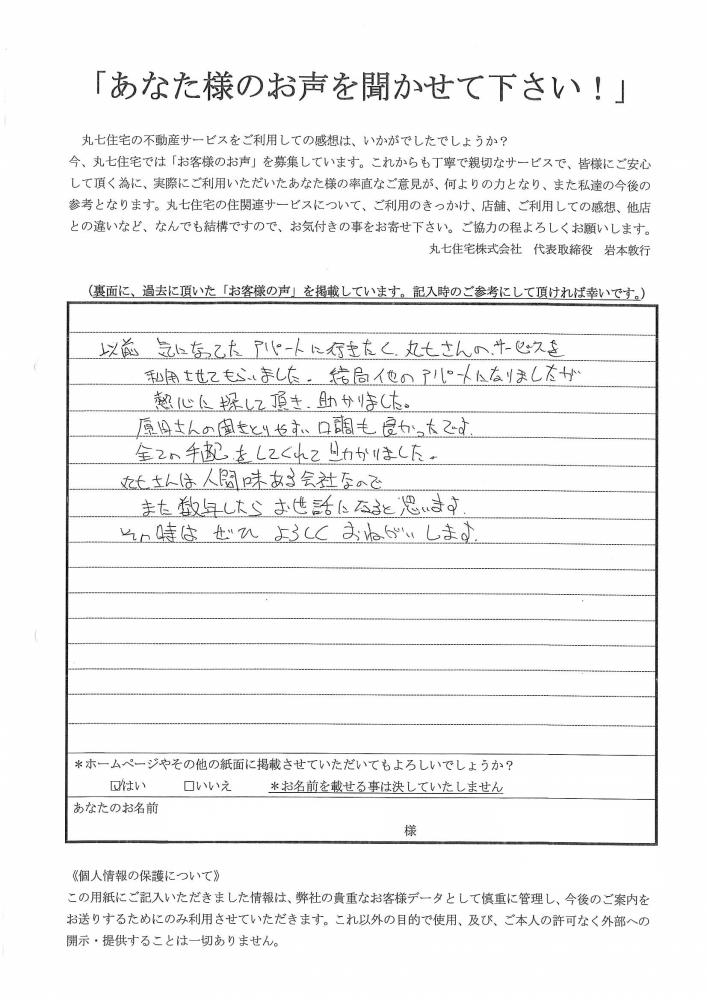 「あなた様のお声を聞かせて下さい！」
丸七住宅の不動産サービスをご利用しての感想は、いかがでしたでしょうか？
今、丸七住宅では「お客様のお声」を募集しています。これからも丁寧で親切なサービスで、皆様にご安心
して頂く為に、実際にご利用いただいたあなた様の率直なご意見が、何よりの力となり、また私達の今後の
参考となります。丸七住宅の住関連サービスについて、ご利用のきっかけ、店舗、ご利用しての感想、他店
との違いなど、なんでも結構ですので、お気付きの事をお寄せ下さい。ご協力の程よろしくお願いします。
丸七住宅株式会社　代表取締役　岩本敦行
（裏面に、過去に頂いた「お客様の声」を掲載しています。記入時のご参考にして頂ければ幸いです。）
以前 気になってた アパートに行きたく、丸七さんの、サービスを
利用させてもらいました。結局他のアパートになりましたが
熱心に探して頂き、助かりました。
さんの聞きとりやすい口調も良かったです。
全ての手配をしてくれて助かりました。
丸七さんは人間味ある会社なので
また数年したら お世話になると思います。
その時は ぜひ よろしく おねがいします。
＊ホームページやその他の紙面に掲載させていただいてもよろしいでしょうか？
☑はい　□いいえ　＊お名前を載せる事は決していたしません
あなたのお名前
様
《個人情報の保護について》
この用紙にご記入いただきました情報は、弊社の貴重なお客様データとして慎重に管理し、今後のご案内を
お送りするためにのみ利用させていただきます。これ以外の目的で使用、及び、ご本人の許可なく外部への
開示・提供することは一切ありません。